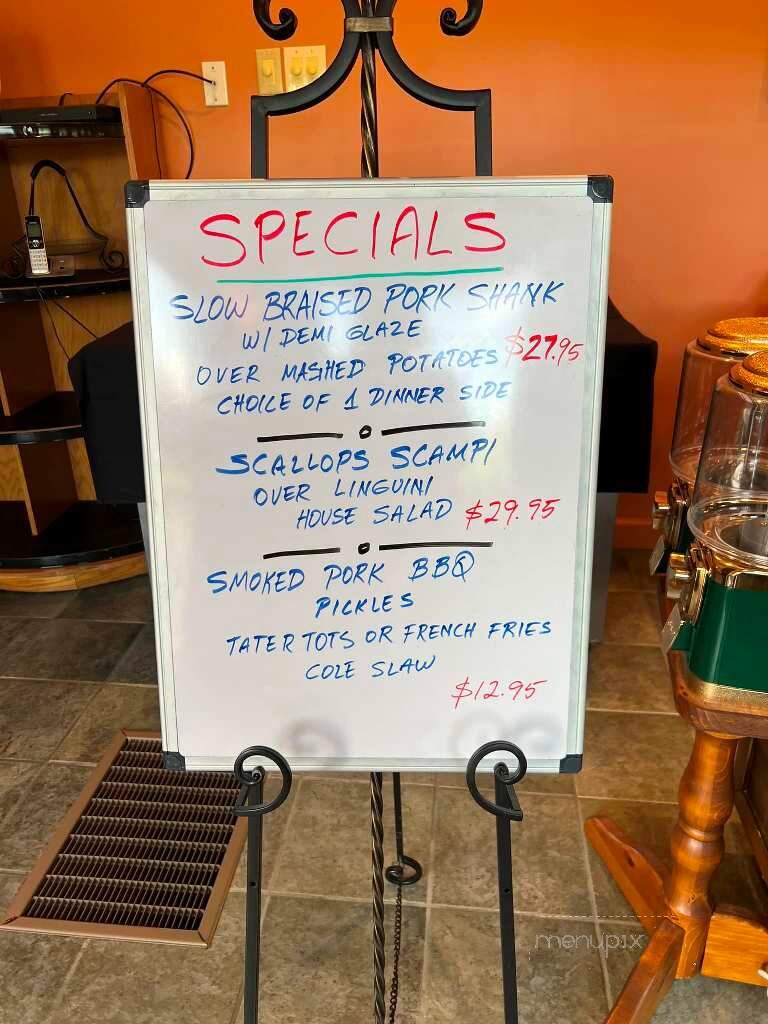 SPECIALS
SLOW BRAISED PORK SHANK
W/ DEMI GLAZE
OVER MASHED POTATOES $27.95
CHOICE OF 1 DINNER SIDE
SCALLOPS SCAMPI
OVER LINGUINI
HOUSE SALAD $29.95
SMOKED PORK BBQ
PICKLES
TATER TOTS OR FRENCH FRIES
COLE SLAW
$12.95
menupix